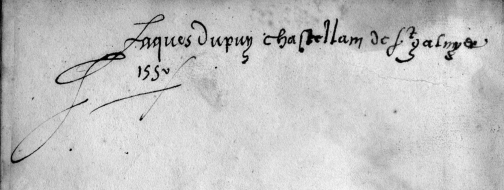 Jaques dupuy chastellain de st galmyer
155v